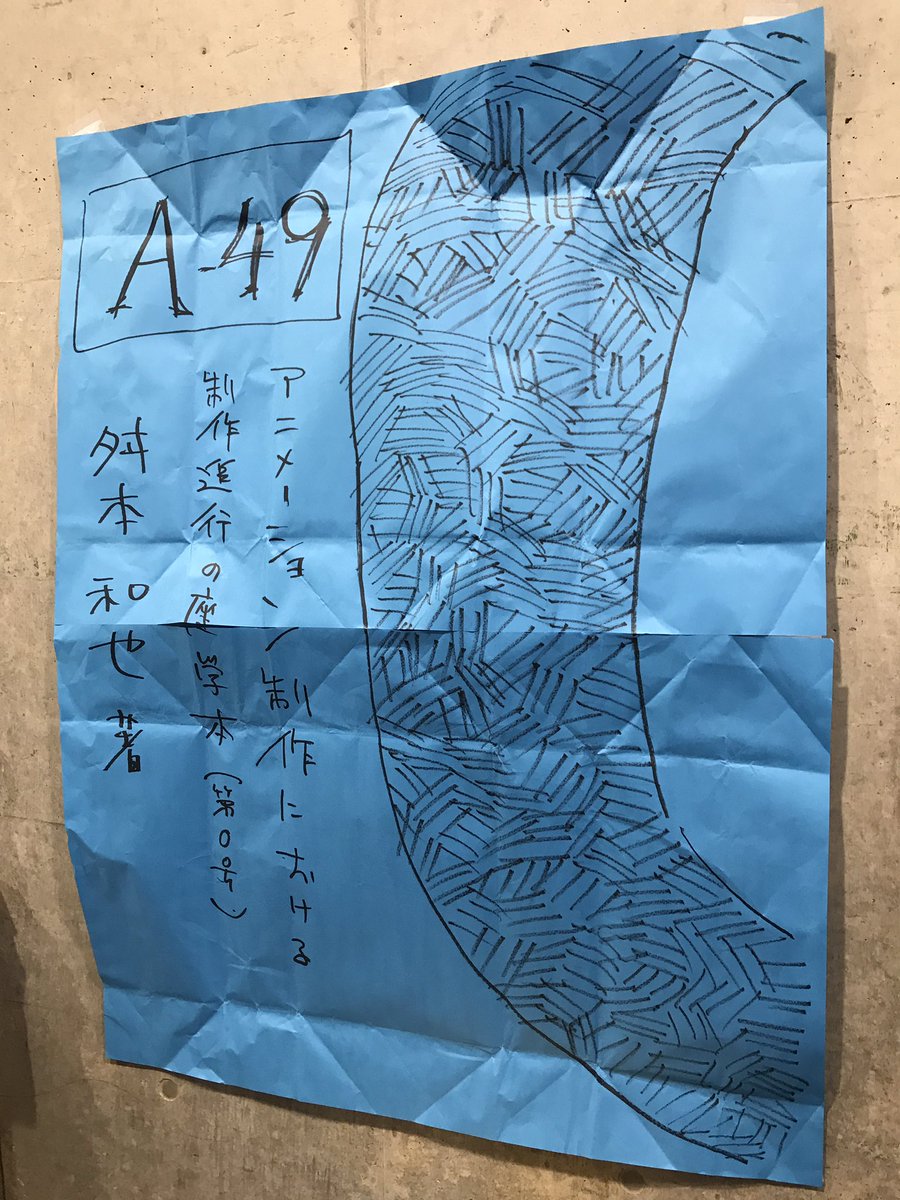 A-49
アニメーション制作における
制作進行の座学本(第0号)
舛本和也 著